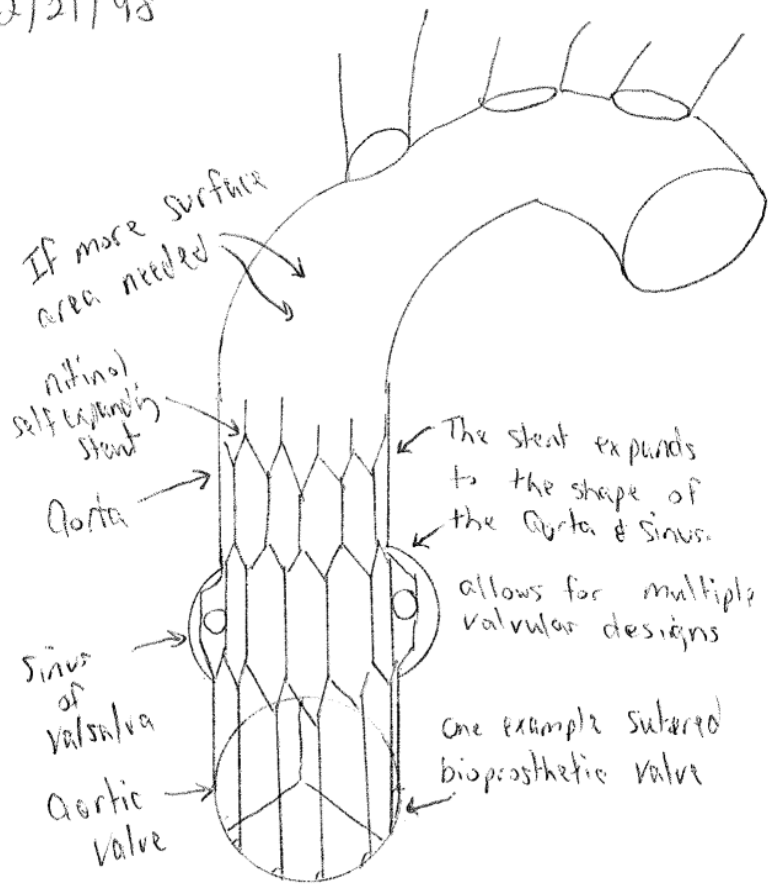 2/21/98
If more surface
area needed
nitinol
self expanding
stent
aorta
The stent expands
to the shape of
the aorta & sinus.
allows for multiple
valvular designs
sinus
of
valsalva
aortic
valve
one example sutured
bioprosthetic valve